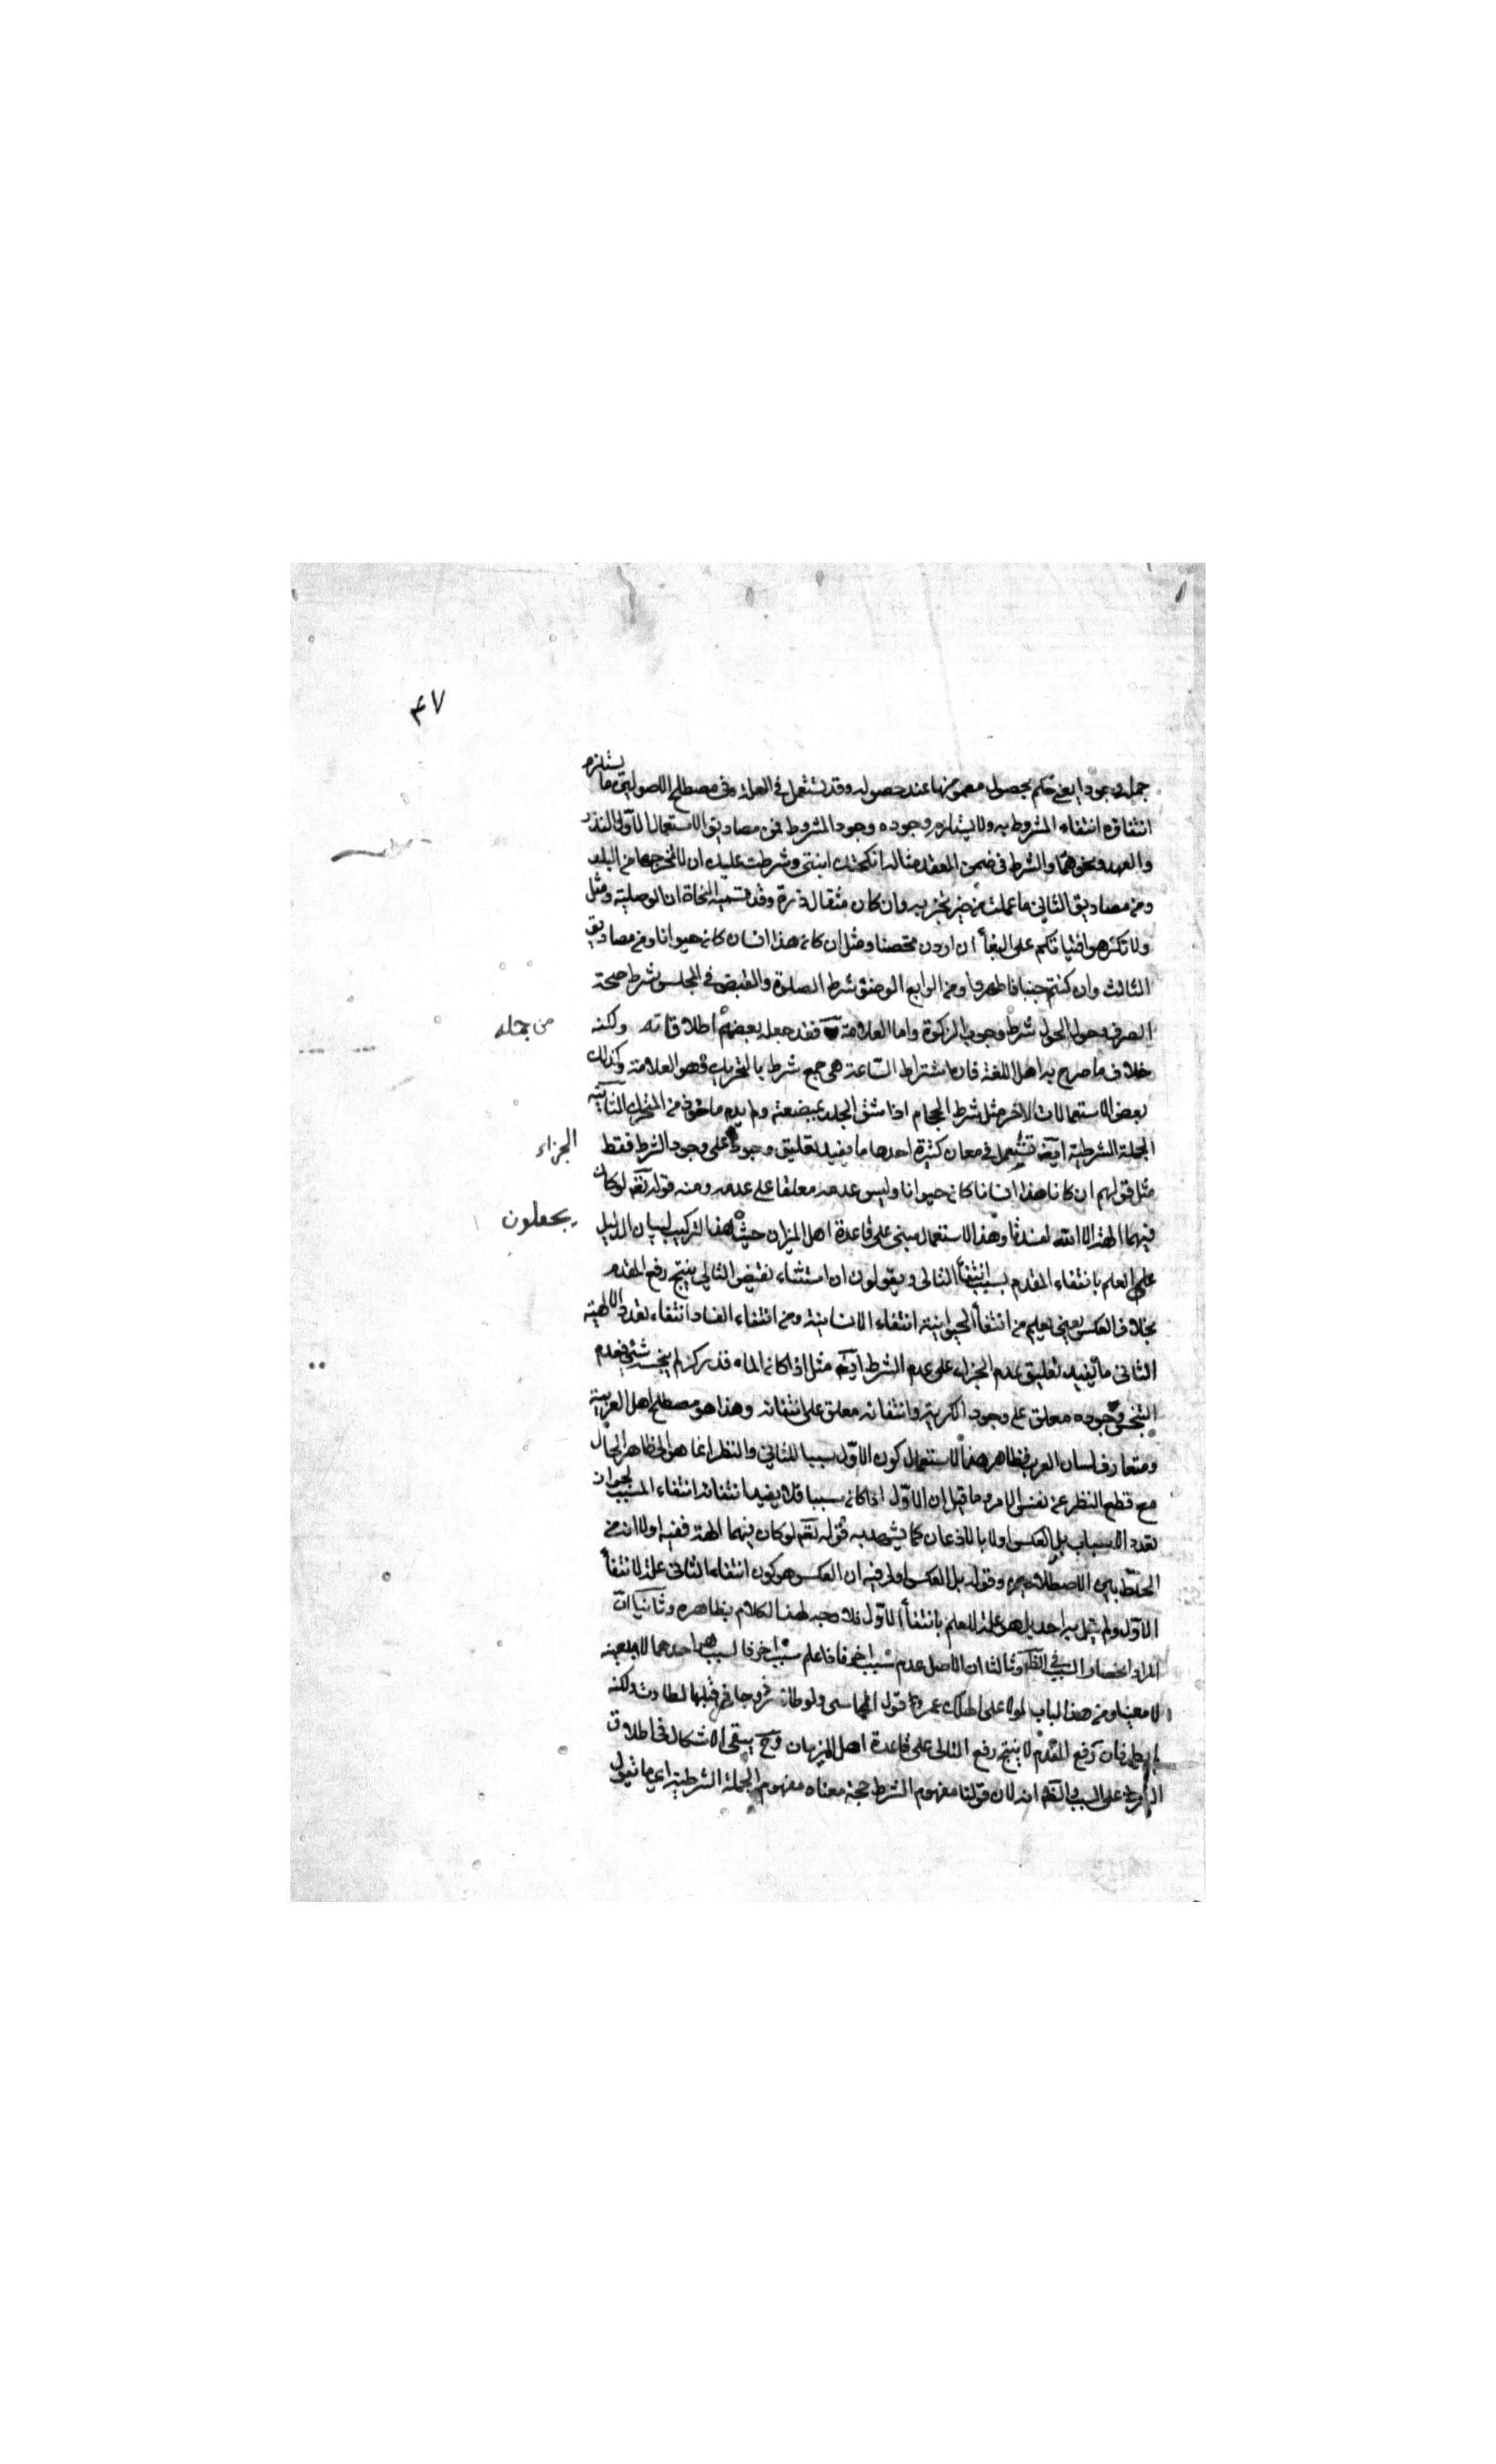 ٤٧
يستلزم
جملة وجودا يعني حكم بحصول مضمونها عند حصوله وقد يستعمل في العلة وفى مصطلح الاصوليين ما
انتفاؤه انتفاء المشروط به ولا يستلزم وجوده وجود المشروط فمن مصاديق الاستعمال الاول النذر
والعهد ونحوهما والشرط فى ضمن العقد مثاله انكحتك ابنتى وشرطت عليك ان لا تخرجها من البلد
ومن مصاديق الثاني ما عملت من خير تجز به وان كان مثقال ذرة وقد تسميه النحاة ان الوصلية ومثل
ولا تكرهوا فتياتكم على البغأ ان اردن تحصنا ومثل ان كان هذا انسان كان حيوانا ومن مصاديق
الثالث وان كنتم جنبا فاطهروا ومن الرابع الوضوء شرط الصلوة والقبض في المجلس شرط صحة
الصرف وحول الحول شرط وجوب الزكوة واما العلامة فقد جعله بعضهم اطلاقاته ولكنه
من جملة
خلاف ما صرح به اهل اللغة فان اشتراط الساعة هى جمع شرط بالتحريك وهو العلامة وكذلك
بعض الاستعمالات الاخر مثل شرط الحجام اذا شق الجلد بمبضعه ولم يدم ماخوذ من المتحرك الثانية
الجملة الشرطية ايضه تستعمل في معان كثيرة احدها ما يفيد تعليق وجود على وجود الشرط فقط
الجزاء
مثل قولهم ان كان هذا انسانا كان حيوانا وليس عدمه معلقا على عدمه ومنه قوله تعه لو كان
فيهما الهة الا الله لفسدتا وهذا الاستعمال مبنى على قاعدة اهل الميزان حيث هذا التركيب لبيان الدليل
يجعلون
على العلم بانتفاء المقدم بسبب انتفأ التالى ويقولون ان استثناء نقيض التالي ينتج رفع المقدم
بخلاف العكس يعني يعلم من انتفأ الحيوانية انتفاء الانسانية ومن انتفاء الفساد انتفاء تعدد الالهية
الثانى ما يفيد تعليق عدم الجزاء على عدم الشرط ايضه مثل اذا كان الماء قدر كر لم ينجسه شئ فعدم
التنجس وجوده معلق على وجود الكرية وانتفائه معلق على انتفائه وهذا هو مصطلح اهل العربية
ومتعارف لسان العرب فظاهر هذا الاستعمال كون الاول سببا للثاني والنظر انما هو الى ظاهر الحال
مع قطع النظر عن نفس الامر وما قيل ان الاول اذا كان سببا فلا يفيد انتفائه انتفاء المسبب لجواز
تعدد الاسباب بل العكس اولا بالاذعان كما يشهد به قوله تعه لو كان فيهما الهة ففيه اولا انه من
الخلط بين الاصطلاحين وقوله بل العكس اولى فيه ان العكس هو كون انتفاء الثانى علة لانتفأ
الاول ولم يقل به احد بل هو علة للعلم بانتفأ الاول فلا وجه لهذا الكلام بظاهره وثانيا ان
المراد انحصار السبب في الظه وثالثا ان الاصل عدم سبب اخر فاذا علم سبب اخر فالسبب هو احدهما لا بعينه
لا معينا ومن هذا الباب لولا على لهلك عمر وقول الحماسى ولو طار ذو حافر قبلها لطارت ولكنه
لم يطر فان رفع المقدم لا ينتج رفع التالى على قاعدة اهل الميزان وح يبقى الاشكال في اطلاق
الشرط على السبب في الظه انه لان قولنا مفهوم الشرط حجة معناه مفهوم الجملة الشرطية اي ما تقول